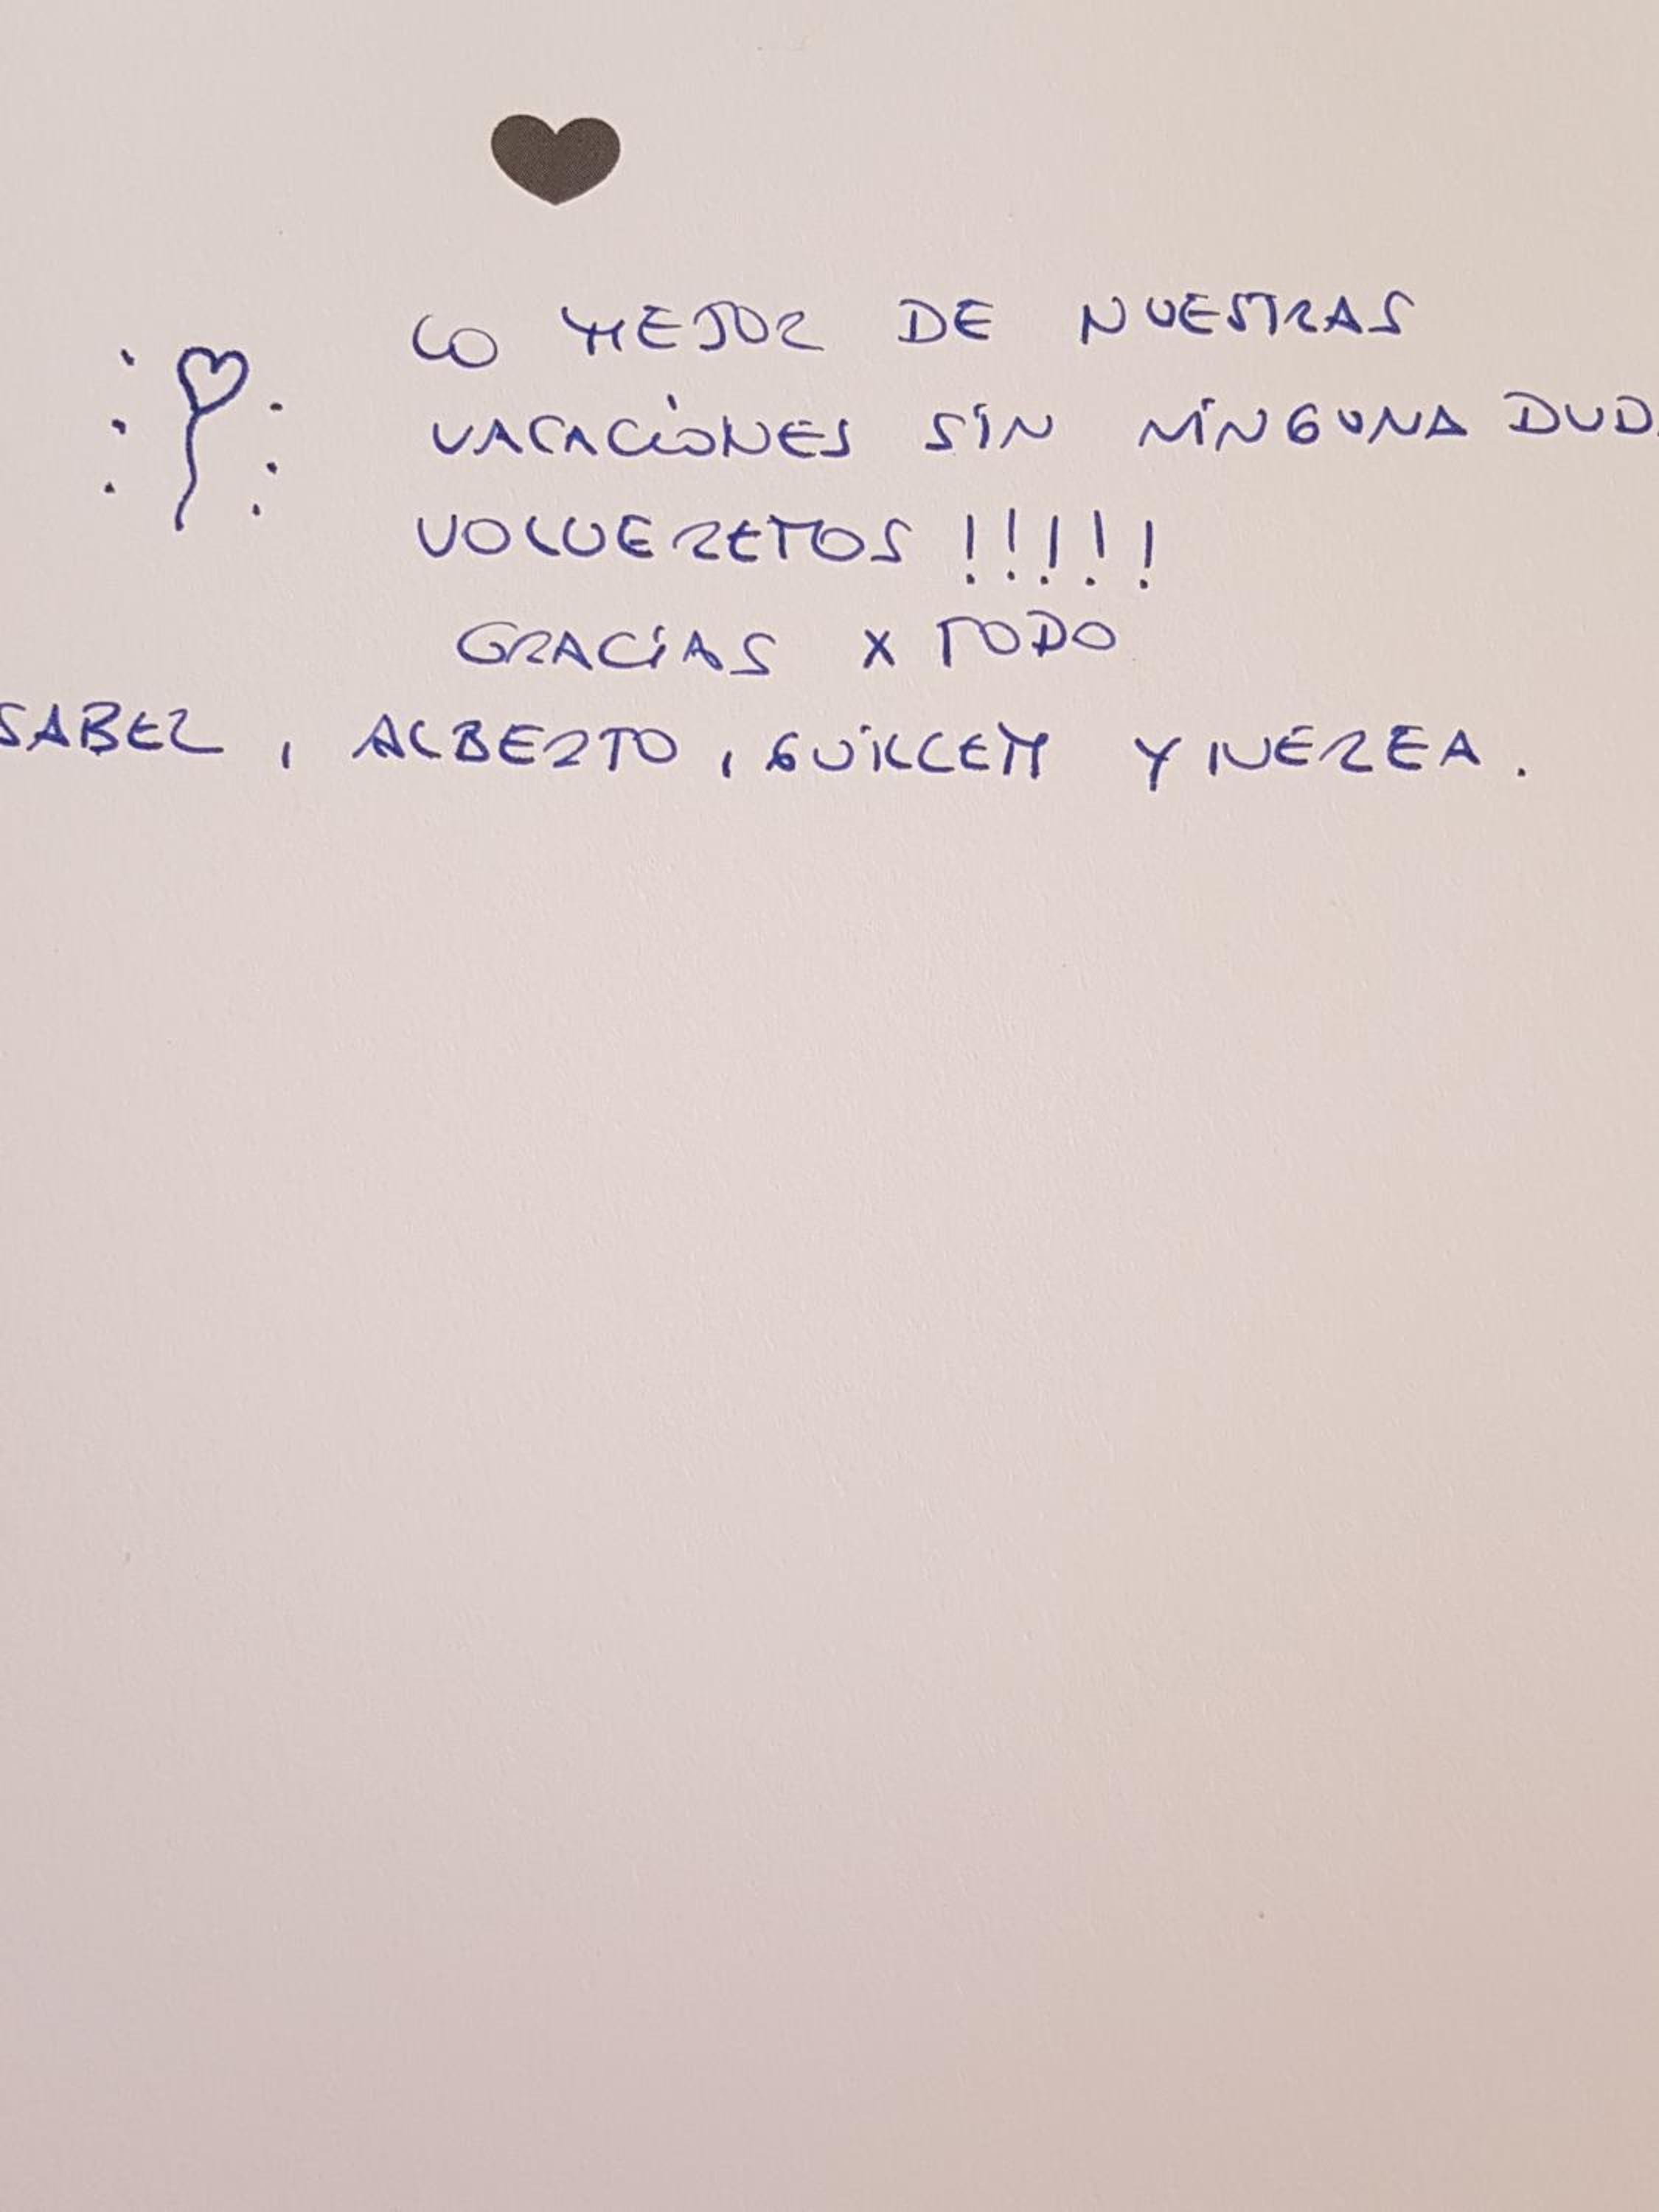 LO MEJOR DE NUESTRAS
VACACIONES SIN NINGUNA DUD
VOLVEREMOS !!!!!
GRACIAS X TODO
SABEL, ALBERTO, GUILLEM Y NEREA.